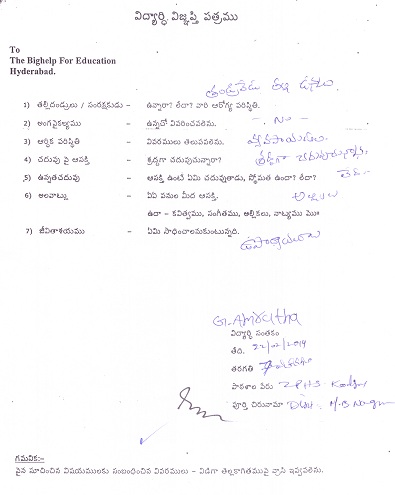 విద్యార్థి విజ్ఞప్తి పత్రము
To
The Bighelp For Education
Hyderabad.
తండ్రిలేడు తల్లి ఉన్నది
1) తల్లిదండ్రులు / సంరక్షకుడు - ఉన్నారా? లేదా? వారి ఆరోగ్య పరిస్థితి.
2) అంగవైకల్యము - ఉన్నచో వివరించవలెను. - NO -
3) ఆర్థిక పరిస్థితి - వివరములు తెలుపవలెను. వ్యవసాయము
4) చదువు పై ఆసక్తి - శ్రద్ధగా చదువుచున్నారా? శ్రద్ధగా చదువుచున్నారు
5) ఉన్నతచదువు - ఆసక్తి ఉంటే ఏమి చదువుతాడు, స్తోమత ఉందా? లేదా? లేదు
6) అలవాట్లు - ఏఏ పనుల మీద ఆసక్తి. అల్లికలు
ఉదా - కవిత్వము, సంగీతము, అల్లికలు, నాట్యము మొ॥
7) జీవితాశయము - ఏమి సాధించాలనుకుంటున్నది. ఉపాధ్యాయురాలు
G. Amrutha
విద్యార్థి సంతకం
తేది. 22/02/2019
తరగతి
పాఠశాల పేరు ZPHS
పూర్తి చిరునామా M-B Nagar
గమనిక:-
పైన సూచించిన విషయములకు సంబంధించిన వివరములు - విడిగా తెల్లకాగితముపై వ్రాసి ఇవ్వవలెను.